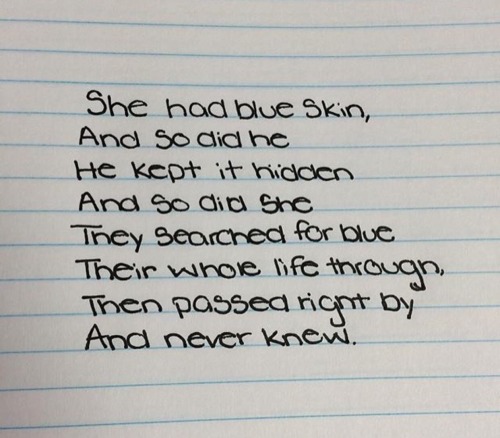 She had blue skin,
And so did he
He kept it hidden
And so did she
They searched for blue
Their whole life through,
Then passed right by
And never knew.